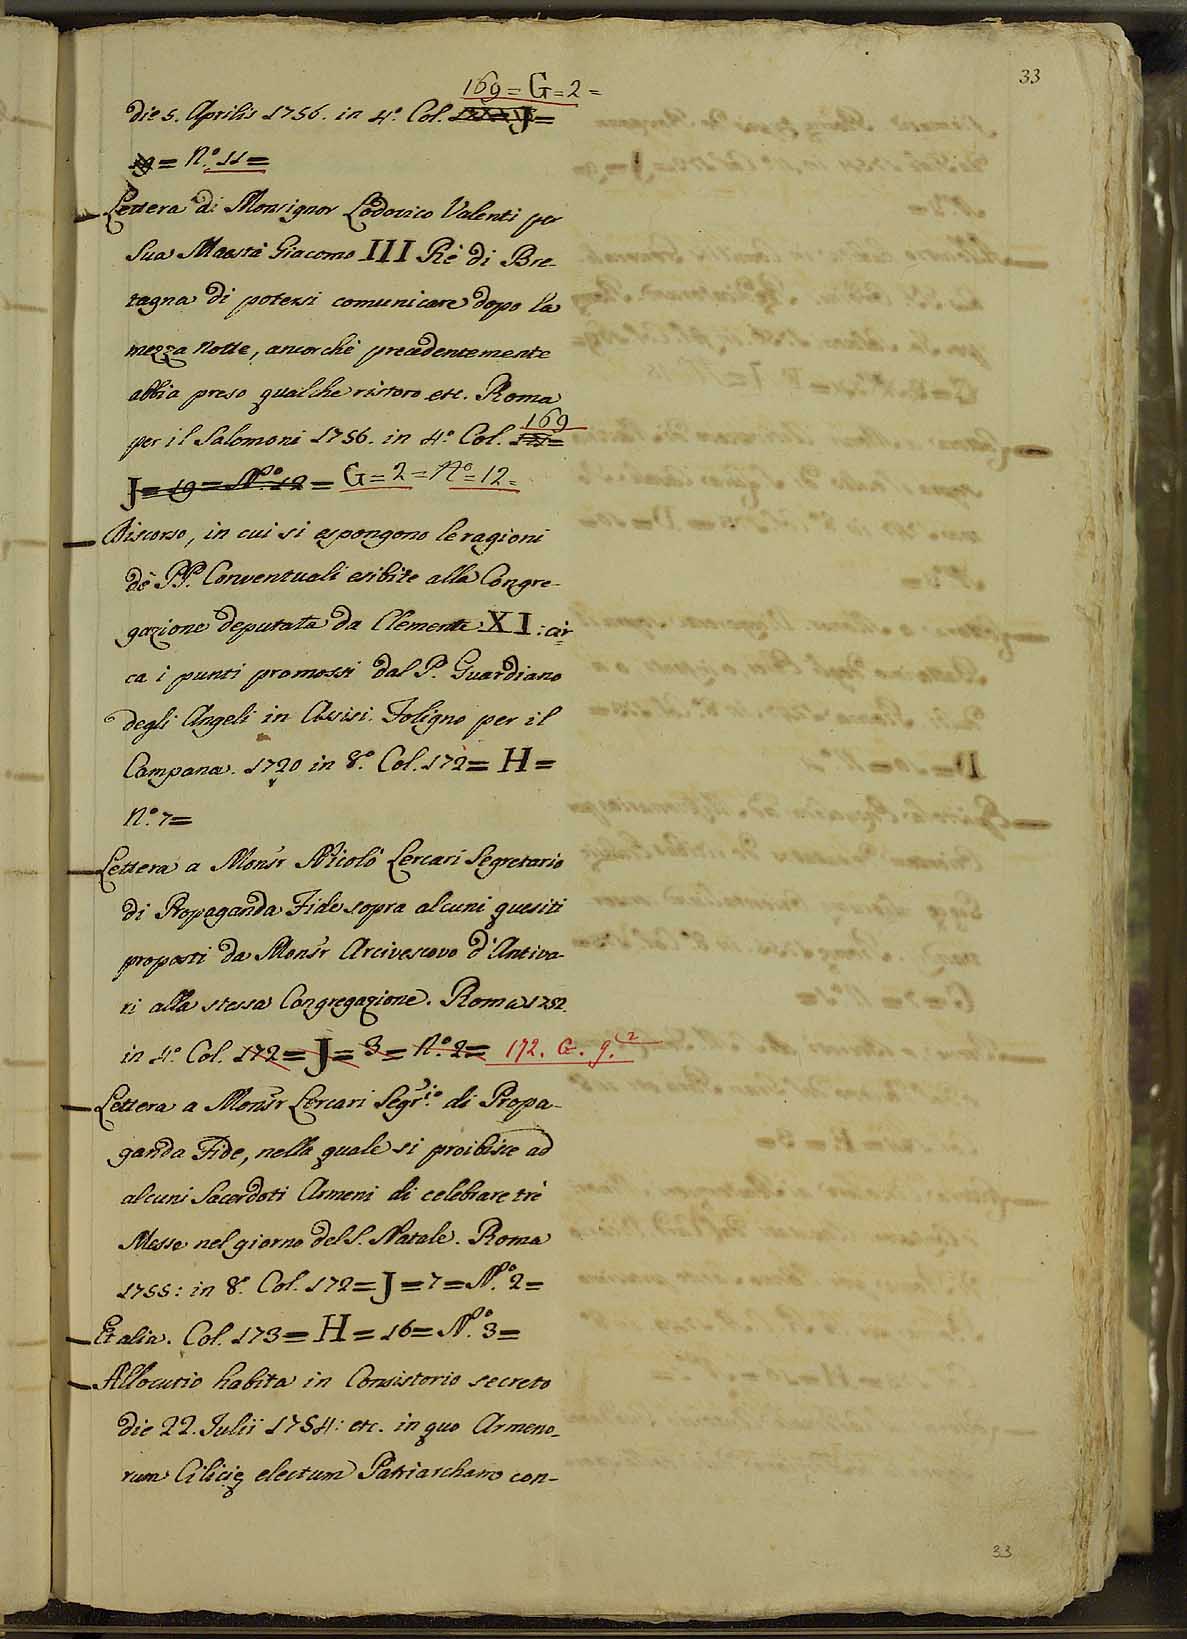 33
169 = G = 2 =
die 5. Aprilis 1756. in 4.° Col. J =
19 = N.° 11 =
Lettera di Monsignor Lodovico Valenti per
Sua Maestà Giacomo III Rè di Bre-
tagna di potersi comunicare dopo la
mezza notte, ancorchè precedentemente
abbia preso qualche ristoro etc. Roma
169
per il Salomoni 1756. in 4.° Col.
J = 19 = N.° 12 = G = 2 = N.° = 12 =
Discorso, in cui si espongono le ragioni
dè PP. Conventuali esibite alla Congre-
gazione deputata da Clemente XI: cir
ca i punti promossi dal P. Guardiano
degli Angeli in Assisi. Foligno per il
Campana. 1720 in 8.° Col. 172 = H =
N.° 7 =
Lettera a Monsr Nicolò Lercari Segretario
di Propaganda Fide sopra alcuni quesiti
proposti da Monsr Arcivescovo d'Antiva-
ri alla stessa Congregazione. Roma
in 4.° Col. 172 = J = 3 = N.° 2 = 172. G. 9. 2
Lettera a Monsr Lercari Segr.io di Propa-
ganda Fide, nella quale si proibisce ad
alcuni Sacerdoti Armeni di celebrare trè
Messe nel giorno del S. Natale. Roma
1755: in 8.° Col. 172 = J = 7 = N.° 2 =
Et alia. Col. 173 = H = 16 = N.° 3 =
Allocutio habita in Consistorio secreto
die 22. Julii 1754: etc. in quo Armeno-
rum Cilicię electum Patriarcham con-
33